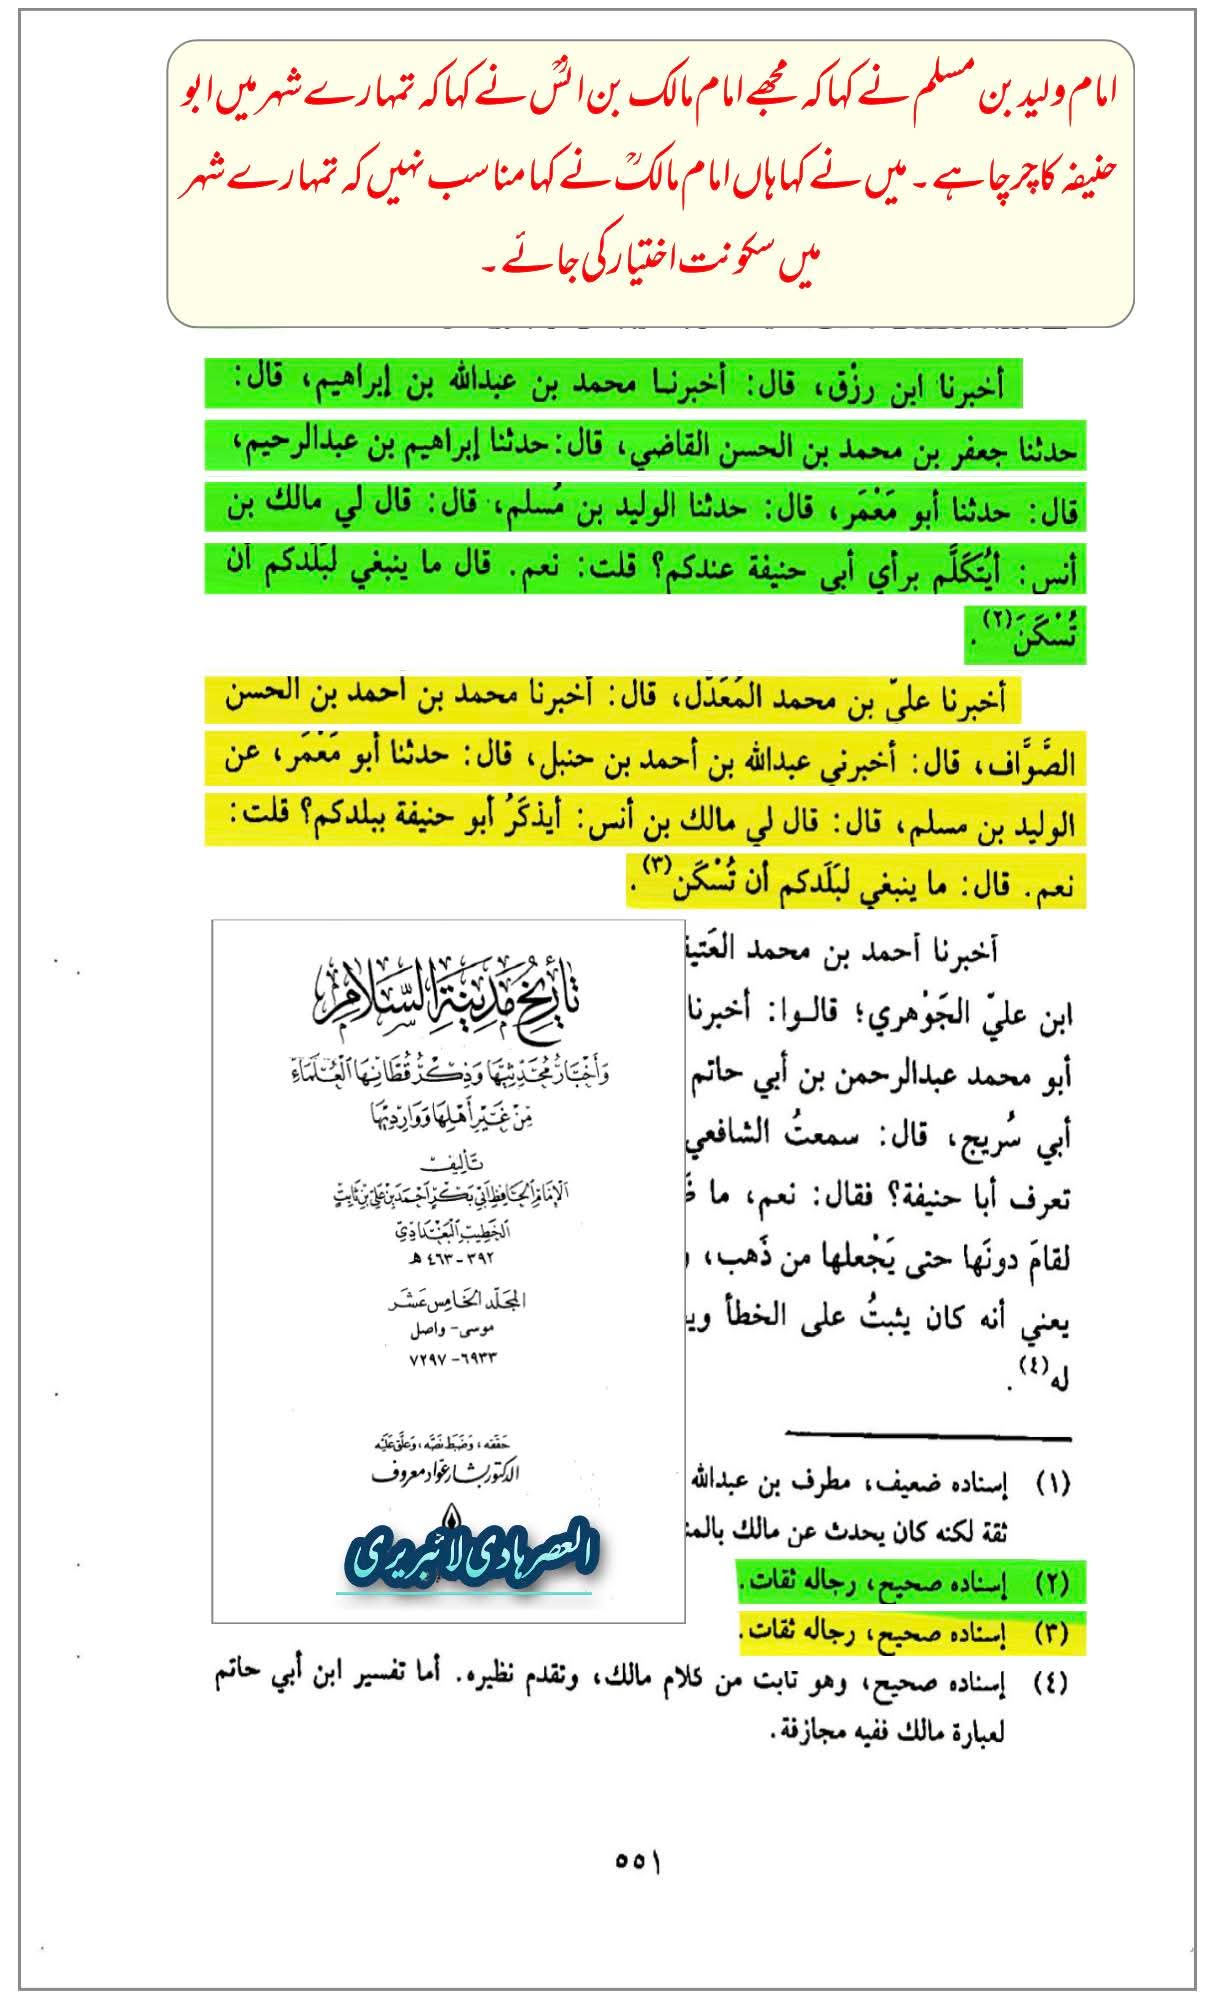 امام ولید بن مسلم نے کہا کہ مجھے امام مالک بن انسؒ نے کہا کہ تمہارے شہر میں ابو
حنیفہ کا چرچا ہے۔ میں نے کہا ہاں امام مالکؒ نے کہا مناسب نہیں کہ تمہارے شہر
میں سکونت اختیار کی جائے۔
أخبرنا ابن رزْق، قال: أخبرنا محمد بن عبدالله بن إبراهيم، قال:
حدثنا جعفر بن محمد بن الحسن القاضي، قال: حدثنا إبراهيم بن عبدالرحيم،
قال: حدثنا أبو مَعْمَر، قال: حدثنا الوليد بن مُسلم، قال: قال لي مالك بن
أنس: أيُتَكَلَّم برأي أبي حنيفة عندكم؟ قلت: نعم. قال ما ينبغي لبَلَدكم أن
تُسْكَنَ(٢).
أخبرنا عليّ بن محمد المُعَدَّل، قال: أخبرنا محمد بن أحمد بن الحسن
الصَّوَّاف، قال: أخبرني عبدالله بن أحمد بن حنبل، قال: حدثنا أبو مَعْمَر، عن
الوليد بن مسلم، قال: قال لي مالك بن أنس: أيذكَرُ أبو حنيفة ببلدكم؟ قلت:
نعم. قال: ما ينبغي لبَلَدكم أن تُسْكَن(٣).
أخبرنا أحمد بن محمد العَتيق
ابن عليّ الجَوْهري؛ قالوا: أخبرنا
أبو محمد عبدالرحمن بن أبي حاتم
أبي سُريج، قال: سمعتُ الشافعي
تعرف أبا حنيفة؟ فقال: نعم، ما
لقامَ دونَها حتى يَجْعلها من ذَهب،
يعني أنه كان يثبتُ على الخطأ
له(٤).
تأريخ مدينة السلام
وأخبار محدثيها وذكر قطانها العلماء
من غير أهلها ووارديها
تأليف
الإمام الحافظ أبي بكر أحمد بن علي بن ثابت
الخطيب البغدادي
٣٩٢ - ٤٦٣ هـ
المجلد الخامس عشر
موسى - واصل
٦٩٣٣ - ٧٢٩٧
حققه، وضبط نصه، وعلق عليه
الدكتور بشار عواد معروف
العصر ہادی لائبریری
(١) إسناده ضعيف، مطرف بن عبدالله
ثقة لكنه كان يحدث عن مالك
(٢) إسناده صحيح، رجاله ثقات.
(٣) إسناده صحيح، رجاله ثقات.
(٤) إسناده صحيح، وهو ثابت من كلام مالك، وتقدم نظيره. أما تفسير ابن أبي حاتم
لعبارة مالك ففيه مجازفة.
٥٥١